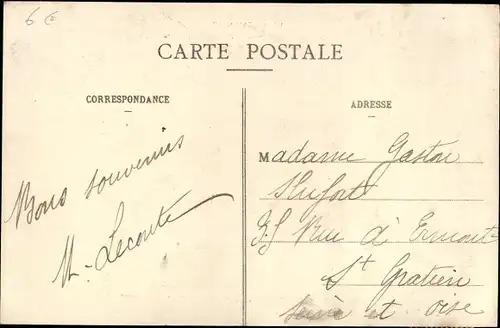 6 €
CARTE POSTALE
CORRESPONDANCE
ADRESSE
Bons souvenirs
M. Lecomte
Madame Gaston
Rue d' Ermont
St Gratien
Seine et oise